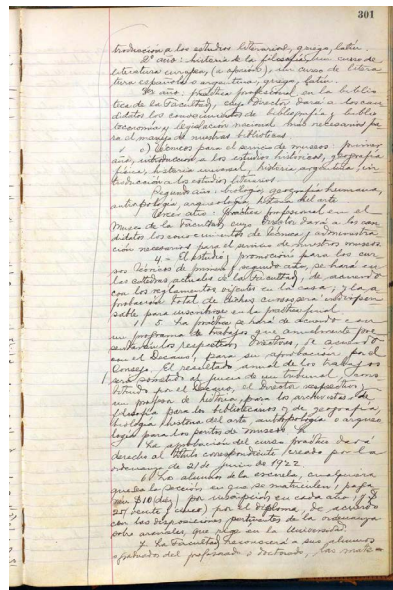 301
troduccion a los estudios literarios, griego, latin.
2º año: historia de la filosofía, un curso de
literatura europea, (a opción), un curso de litera
tura española o argentina, griego, latin.
3er año: práctica profesional en la biblio
teca de la Facultad, cuyo Director dará a los can
didatos los conocimientos de bibliografía y biblio
teconomía y legislación nacional necesarios pa
ra el manejo de nuestras bibliotecas.
c) Técnicos para el servicio de museos: primer
año, introducción a los estudios históricos, geografía
física, historia universal, historia argentina, in
troducción a los estudios literarios.
Segundo año: biología, geografía humana,
antropología, arqueología, historia del arte.
Tercer año: práctica profesional en el
Museo de la Facultad, cuyo Director dará a los can
didatos los conocimientos de técnica y administra
ción necesarios para el servicio de nuestros museos.
4 - El estudio y promoción para los cur
sos técnicos de primero y segundo año, se hará en
las cátedras actuales de la Facultad, de acuerdo
con los reglamentos vigentes en la casa, y la a
probación total de dichos cursos será indispen
sable para inscribirse en la práctica final.
5 - La práctica se hará de acuerdo con
un programa de trabajos que anualmente pre
sentarán los respectivos Directores, de acuerdo
con el Decano, para su aprobación por el
Consejo. El resultado anual de los trabajos
será sometido al juicio de un tribunal cons
tituido por el Decano, el Director respectivo y
un profesor de historia, para los archivistas, de
filosofía para los bibliotecarios y de geografía
biología, historia del arte, antropología o arqueo
logía para los peritos de museos.
La aprobación del curso práctico dará
derecho al título correspondiente, creado por la
ordenanza de 21 de junio de 1922.
6 - Los alumnos de la escuela, cualquiera
que sea la sección en que se matriculen, paga
rán $ 10 (diez) por inscripción en cada año, y $
25 (veinte y cinco) por el diploma, de acuerdo
con las disposiciones pertinentes de la ordenanza
sobre aranceles, que rige en la Universidad.
7 - La Facultad reconocerá a sus alumnos
egresados del profesorado o doctorado, las mate-